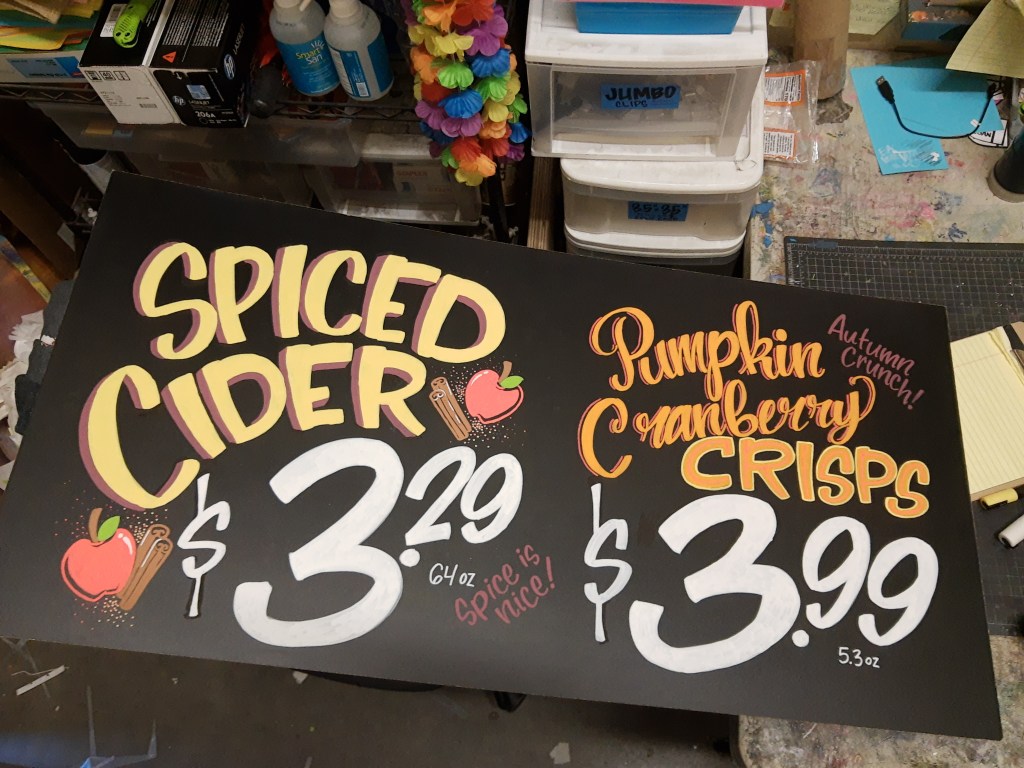 SPICED
CIDER
$3.29
64 oz
Spice is
nice!
Pumpkin
Cranberry
CRISPS
Autumn
Crunch!
$3.99
5.3 oz
JUMBO
CLIPS
hp
206A